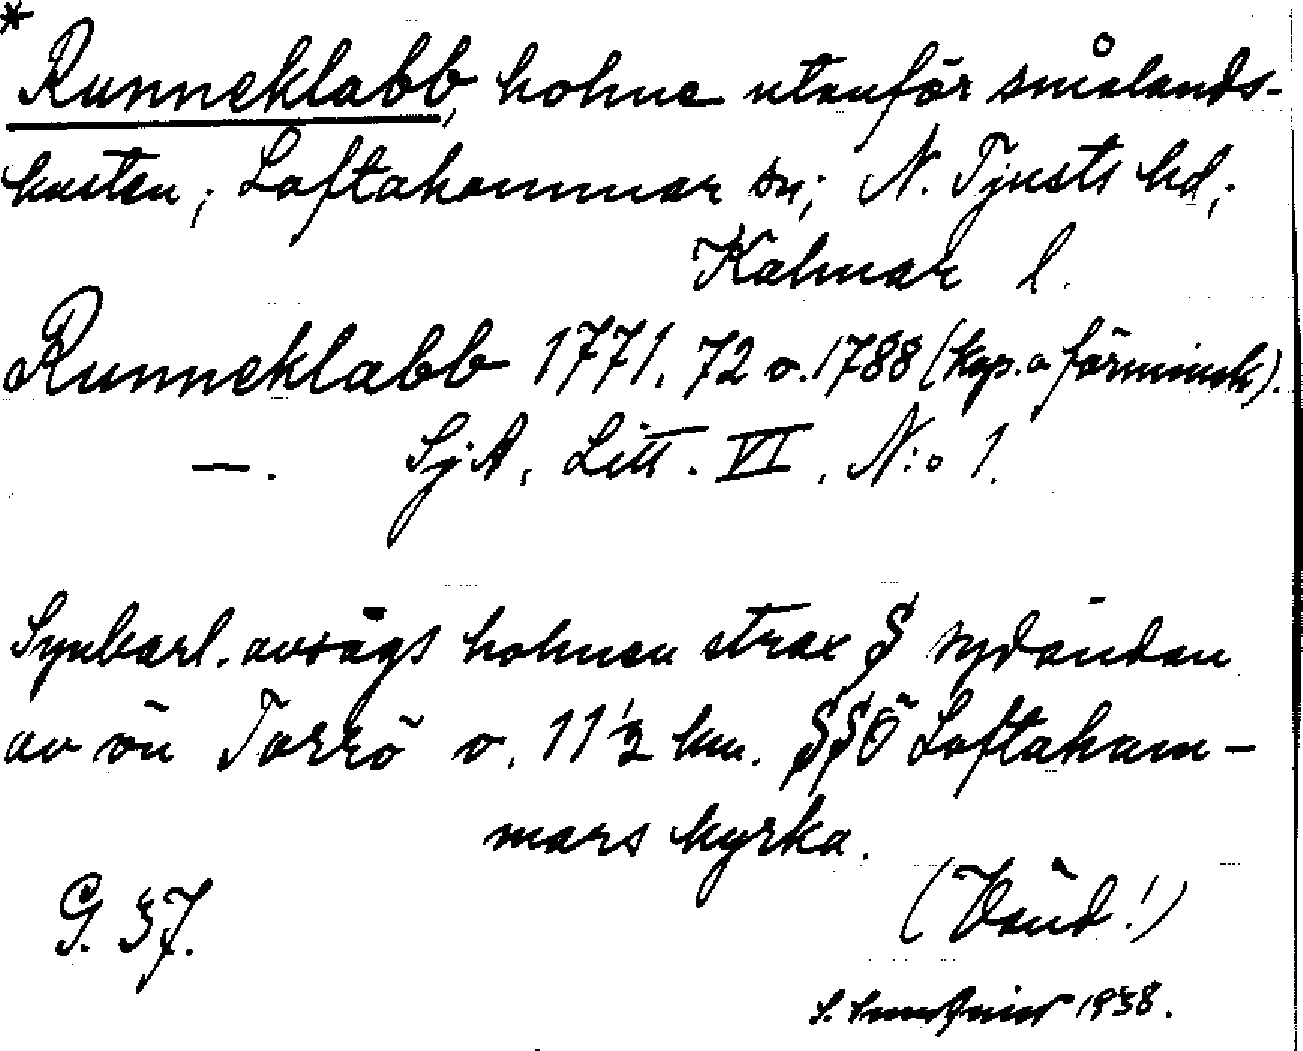 *
Runneklabb, holme utanför smålands-
kusten; Loftahammar sn; N. Tjusts hd;
Kalmar l.
Runneklabb 1771, 72 o. 1788 (kop. o förminsk).
—. SjA, Litt. VI, N:o 1.
Synbarl. avsågs holmen strax S sydändan
av ön Torrö o. 11 1/2 km. SSÖ Loftaham-
mars kyrka.
G. 37.
(Vänd!)
1938.